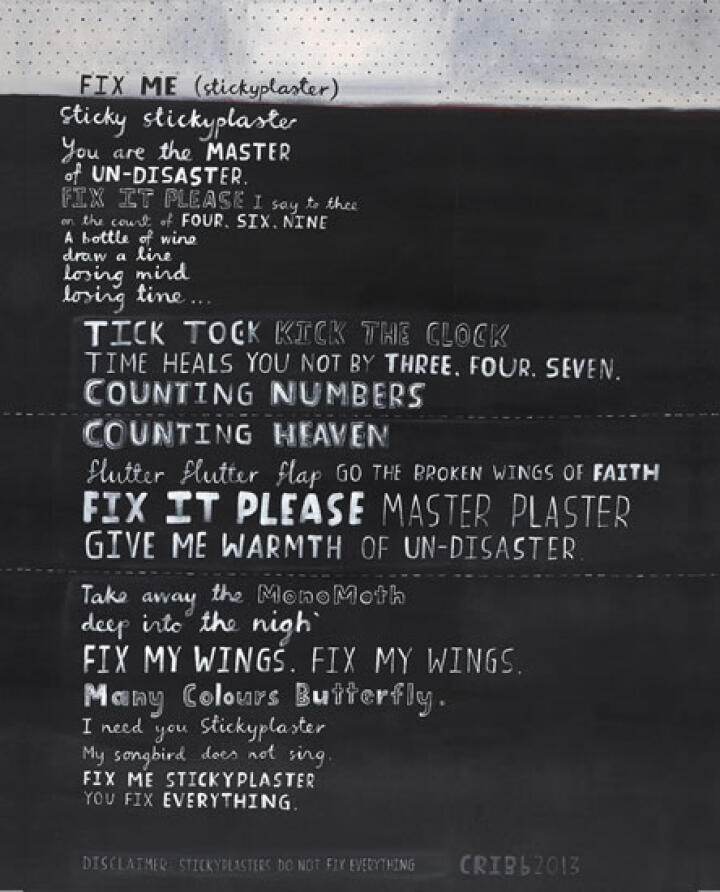 FIX ME (stickyplaster)
Sticky stickyplaster
You are the MASTER
of UN-DISASTER.
FIX IT PLEASE I say to thee
on the count of FOUR. SIX. NINE
A bottle of wine
draw a line
losing mind
losing time...
TICK TOCK KICK THE CLOCK
TIME HEALS YOU NOT BY THREE. FOUR. SEVEN.
COUNTING NUMBERS
COUNTING HEAVEN
flutter flutter flap GO THE BROKEN WINGS OF FAITH
FIX IT PLEASE MASTER PLASTER
GIVE ME WARMTH OF UN-DISASTER.
Take away the MonoMoth
deep into the nigh`
FIX MY WINGS. FIX MY WINGS.
Many Colours Butterfly.
I need you Stickyplaster
My songbird does not sing.
FIX ME STICKYPLASTER
YOU FIX EVERYTHING.
DISCLAIMER: STICKYPLASTERS DO NOT FIX EVERYTHING CRIBb2013